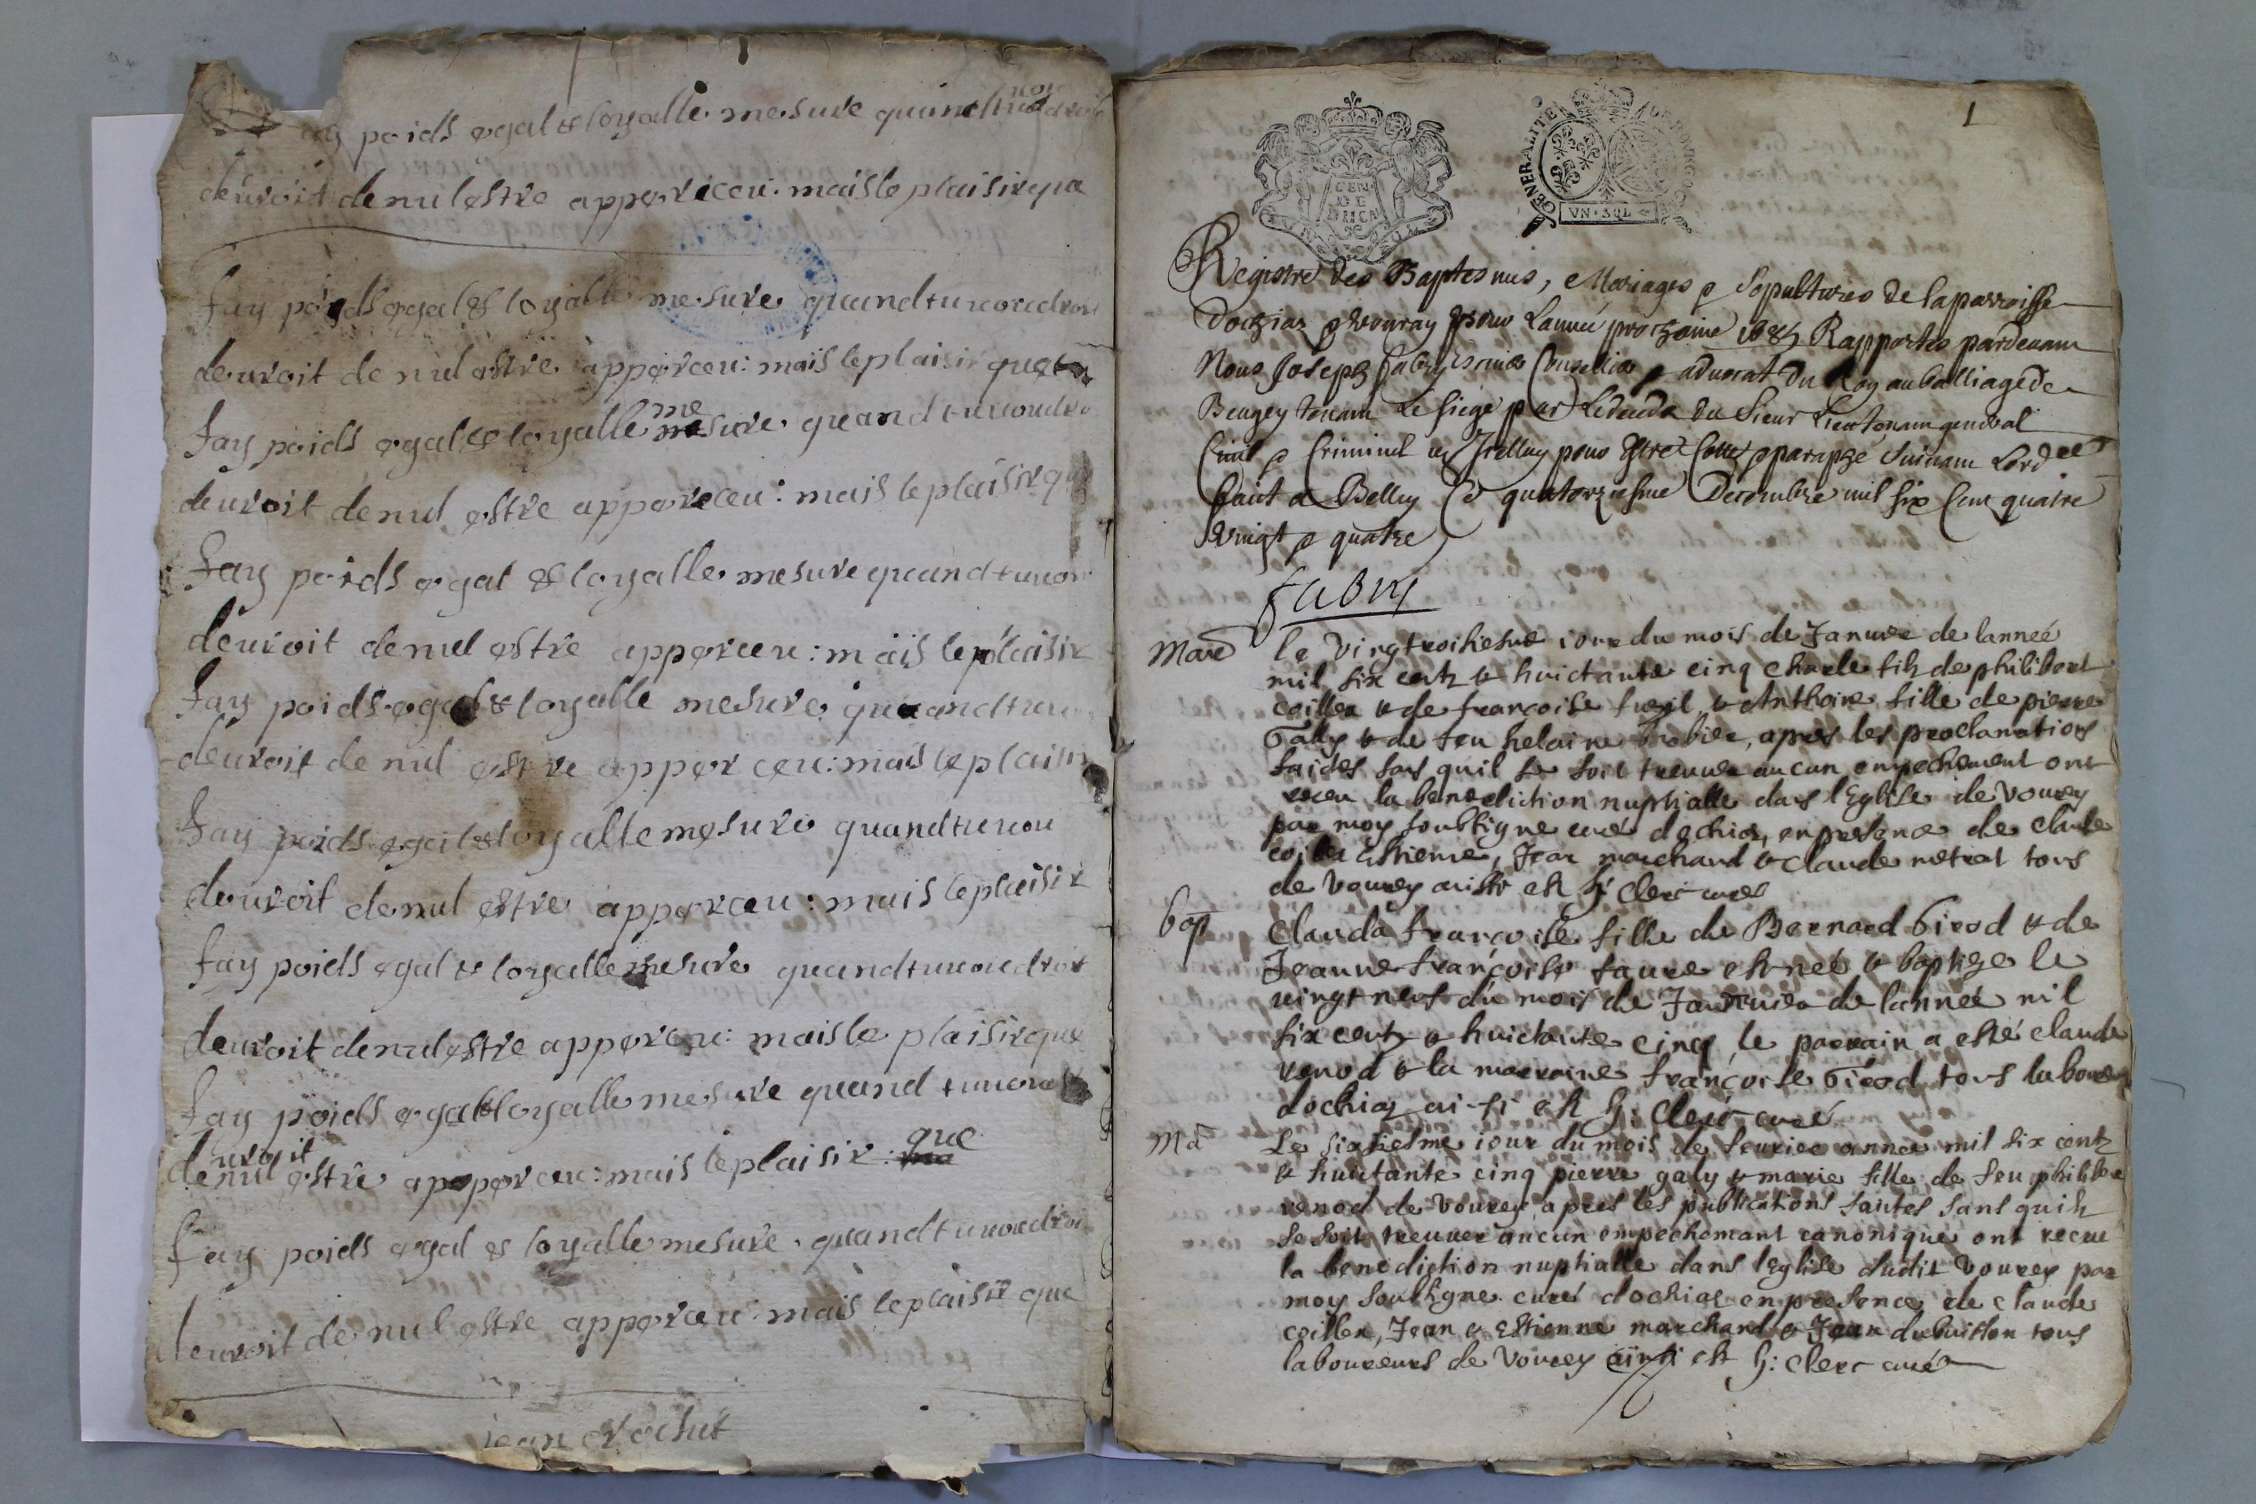 fay poids egal & loyalle mesure quand tu voudrois
deuroit de nul estre apperceu: mais le plaisir que
fay poids egal & loyalle mesure quand tu voudroi
deuroit de nul estre apperceu: mais le plaisir que
fay poids egal & loyalle me mesure quand tu voudro
deuroit de nul estre apperceu: mais le plaisir que
fay poids egal & loyalle mesure quand tu vou
deuroit de nul estre apperceu: mais le plaisir
fay poids egal & loyalle mesure quand tu vo
deuroit de nul estre apperceu: mais le plaisir
fay poids egal & loyalle mesure quand tu vou
deuroit de nul estre apperceu: mais le plaisir
fay poids egal & loyalle mesure quand tu voudroi
deuroit de nul estre apperceu: mais le plaisir que
fay poids egal & loyalle mesure quand tu voud
deuroit de nul estre apperceu: mais le plaisir que
fay poids egal & loyalle mesure quand tu voudroi
deuroit de nul estre apperceu: mais le plaisir que
jean
1
GEN DE BVRG
GENERALITE DE BOVRGOG
VN SOL
Registre des Baptesmes, Mariages & Sepultures de la parroisse
Dochiaz & Vouray pour Lannée prochaine 1685 Rapportés pardeuant
Nous Joseph Fabry Conseillier & aduocat du Roy au balliage de
Beugey tenant Le siege par Le deceds du Sieur Lieutenant general
Ciuil & Criminel en Icelluy pour Estre Cotté & paraphé Suiuant Lord.ce
faict a Belley Ce quatorziesme Decembre mil six Cent quatre
Vingt & quatre
Fabry
Mar le vingtroisiesme iour du mois de Januier de lanneé
mil six centz & huictante cinq Charle filz de philibert
coillex & de françoise & Anthoine fille de pierre
Gally & de feu helaine brobier, apres les proclamations
faictes sans quil se soit treuuer aucun enpechement ont
receu la benediction nuptialle dans lEglise de vourey
par moy soubsigne curé dochiaz, en presence de claude
coillex Estienne, Jean marchand & claude metral tous
de vourey ainsi est h: clerc curé
bap Clauda françoise fille de Bernard Girod & de
Jeanne françoise faure est neé & baptizé le
vingt neuf du mois de Januier de lanneé mil
six centz & huictante cinq le parrain a esté claude
renod & la marraine françoise Girod tous laboureurs
dochiaz ainsi est h: clerc curé
Ma Le sixiesme iour du mois de feurier année mil six centz
& huictante cinq pierre galy & marie fille de feu philibe
renod de vourey apres les publications faictes sans quil
se soit treuuer aucun empechemant canonique ont receu
la benediction nuptialle dans leglise dudit vourey par
moy soubsigne curé dochiaz en presence de claude
coillex, Jean & Estienne marchand & Jean dubuisson tous
laboureurs de vourey ainsi est h: clerc curé